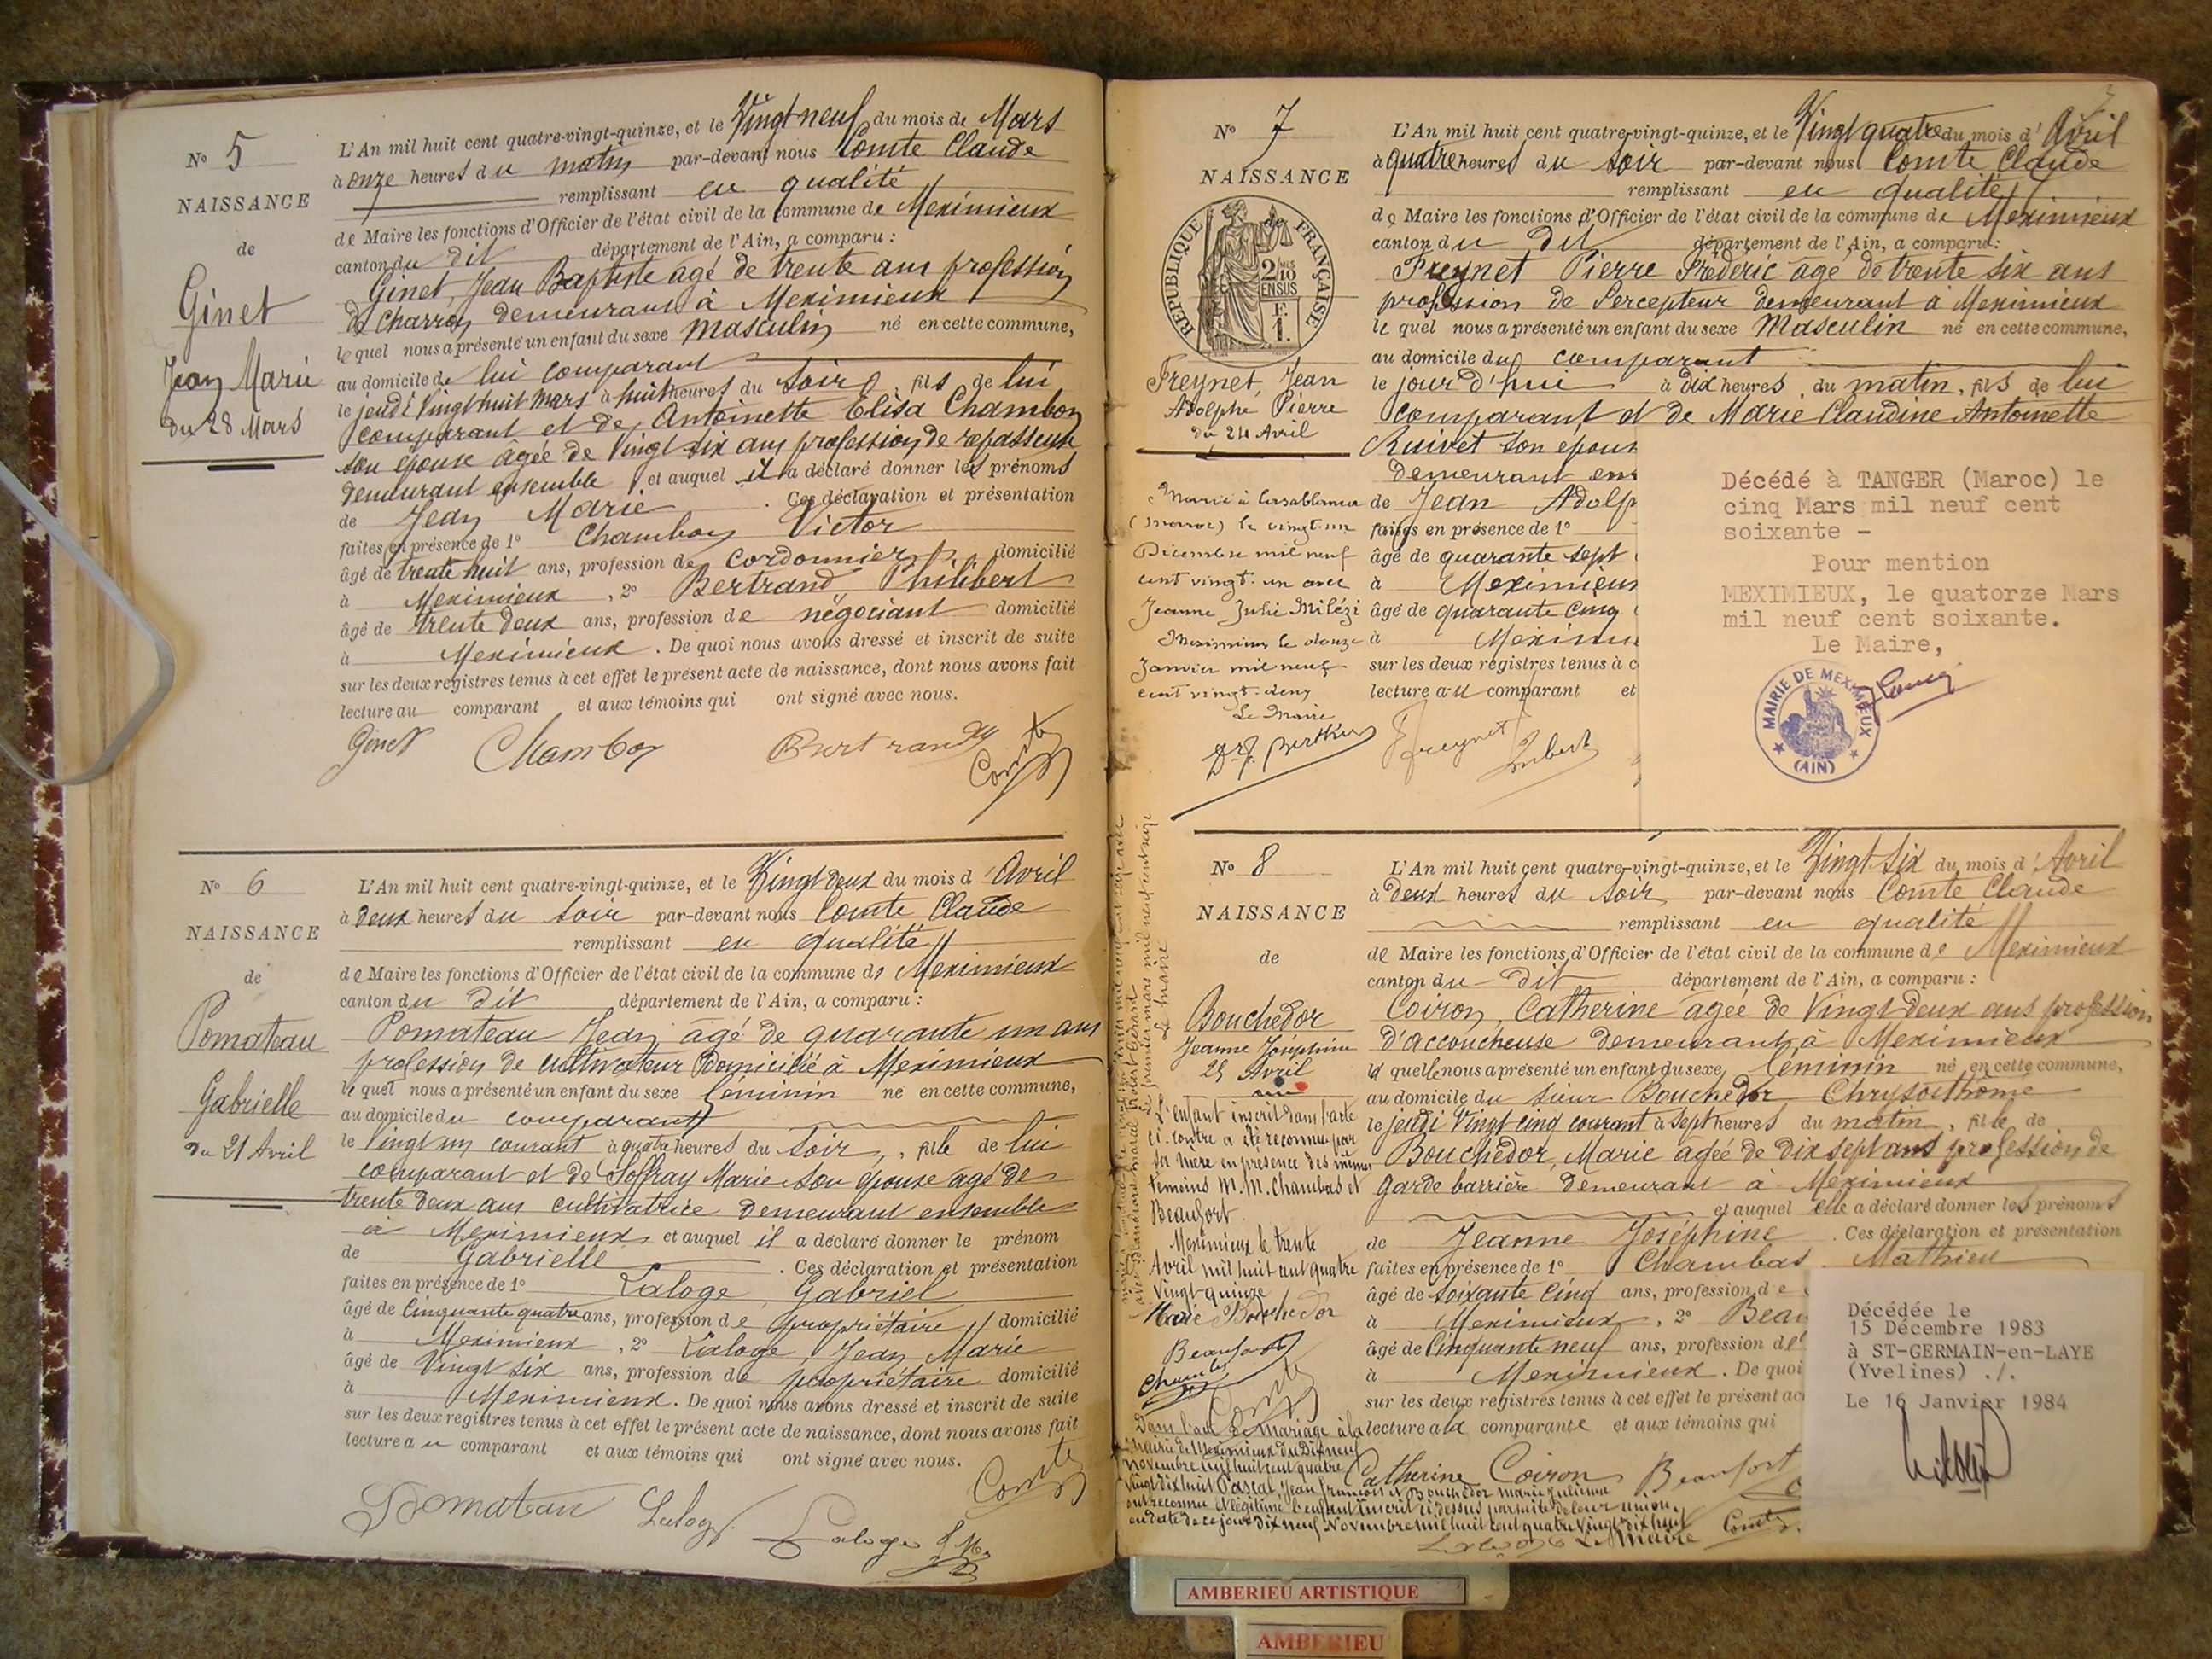 N° 5
NAISSANCE
de
Ginet
Jean Marie
du 28 Mars
L'An mil huit cent quatre-vingt-quinze, et le Vingt neuf du mois de Mars
à onze heures du matin par-devant nous Comte Claude
remplissant en qualité
de Maire les fonctions d'Officier de l'état civil de la commune de Meximieux
canton du dit département de l'Ain, a comparu :
Ginet, Jean Baptiste agé de trente ans profession
de charron demeurant à Meximieux
le quel nous a présenté un enfant du sexe masculin né en cette commune,
au domicile de lui comparant
le jeudi Vingt huit mars à huit heures du soir, fils de lui
comparant et de Antoinette Elisa Chambon
son épouse agée de Vingt six ans profession de repasseuse
demeurant ensemble et auquel il a déclaré donner les prénoms
de Jean Marie . Ces déclaration et présentation
faites en présence de 1° Chambon Victor
âgé de trente huit ans, profession de cordonnier domicilié
à Meximieux , 2° Bertrand Philibert
âgé de trente deux ans, profession de négociant domicilié
à Meximieux . De quoi nous avons dressé et inscrit de suite
sur les deux registres tenus à cet effet le présent acte de naissance, dont nous avons fait
lecture au comparant et aux témoins qui ont signé avec nous.
Ginet Chambon Bertrand Comte
N° 6
NAISSANCE
de
Pomateau
Gabrielle
du 21 Avril
L'An mil huit cent quatre-vingt-quinze, et le Vingt deux du mois d'Avril
à deux heures du soir par-devant nous Comte Claude
remplissant en qualité
de Maire les fonctions d'Officier de l'état civil de la commune de Meximieux
canton du dit département de l'Ain, a comparu :
Pomateau Jean agé de quarante un ans
profession de cultivateur domicilié à Meximieux
le quel nous a présenté un enfant du sexe féminin né en cette commune,
au domicile du comparant
le Vingt un courant à quatre heures du soir, fille de lui
comparant et de Soffray Marie son épouse agé de
trente deux ans cultivatrice demeurant ensemble
à Meximieux et auquel il a déclaré donner le prénom
de Gabrielle . Ces déclaration et présentation
faites en présence de 1° Laloge Gabriel
âgé de Cinquante quatre ans, profession de propriétaire domicilié
à Meximieux , 2° Laloge, Jean Marie
âgé de Vingt six ans, profession de propriétaire domicilié
à Meximieux. De quoi nous avons dressé et inscrit de suite
sur les deux registres tenus à cet effet le présent acte de naissance, dont nous avons fait
lecture au comparant et aux témoins qui ont signé avec nous.
Comte
Pomateau Laloge Laloge J M
N° 7
NAISSANCE
RÉPUBLIQUE FRANÇAISE
2/10 EN SUS
F. 1.
Freynet, Jean
Adolphe, Pierre
du 24 Avril
Marié à Casablanca
(Maroc) le vingt un
Décembre mil neuf
cent vingt-un avec
Jeanne Julie Milézi
Meximieux le douze
Janvier mil neuf
cent vingt-deux
Le Maire
L'An mil huit cent quatre-vingt-quinze, et le Vingt quatre du mois d'Avril
à quatre heures du soir par-devant nous Comte Claude
remplissant en qualité
de Maire les fonctions d'Officier de l'état civil de la commune de Meximieux
canton du dit département de l'Ain, a comparu :
Freynet Pierre Frédéric agé de trente six ans
profession de Percepteur demeurant à Meximieux
le quel nous a présenté un enfant du sexe Masculin né en cette commune,
au domicile du comparant
le jour d'hui à dix heures du matin, fils de lui
comparant et de Marie Claudine Antoinette
Ruivet son epous
demeurant ens
de Jean Adolp
faites en présence de 1°
âgé de quarante sept
à Meximieux
âgé de quarante cinq
à Meximi
sur les deux registres tenus à c
lecture au comparant et
Freynet
Décédé à TANGER (Maroc) le
cinq Mars mil neuf cent
soixante -
Pour mention
MEXIMIEUX, le quatorze Mars
mil neuf cent soixante.
Le Maire,
MAIRIE DE MEXIMIEUX
(AIN)
N° 8
NAISSANCE
de
Bouchedor
Jeanne Joséphine
25 Avril
L'enfant inscrit dans l'acte
ci-contre a été reconnu par
sa mère en présence des mêmes
témoins M.M. Chambas et
Beaufort
Meximieux le trente
Avril mil huit cent quatre
Vingt quinze
Marie Bouchedor
Beaufort
Dans l'acte de mariage à la
mairie de Meximieux du Dix neuf
novembre mil huit cent quatre
Vingt dix huit Pascal, Jean François et Bouchedor marie julienne
ont reconnu et légitimé l'enfant inscrit ci dessus par suite de leur union,
en date de ce jour dix neuf Novembre mil huit cent quatre Vingt dix huit
Le Maire
L'An mil huit cent quatre-vingt-quinze, et le Vingt six du mois d'Avril
à deux heures du soir par-devant nous Comte Claude
remplissant en qualité
de Maire les fonctions d'Officier de l'état civil de la commune de Meximieux
canton du dit département de l'Ain, a comparu :
Coiron, Catherine agée de Vingt deux ans profession
d'accoucheuse demeurant à Meximieux
la quelle nous a présenté un enfant du sexe féminin né en cette commune,
au domicile du sieur Bouchedor Chrysosthôme
le jeudi Vingt cinq courant à sept heures du matin, fille de
Bouchedor, Marie agée de dix sept ans profession de
garde barrière demeurant à Meximieux
et auquel elle a déclaré donner les prénoms
de Jeanne Joséphine . Ces déclaration et présentation
faites en présence de 1° Chambas Mathieu
âgé de soixante cinq ans, profession de
à Meximieux , 2° Beau
âgé de Cinquante neuf ans, profession de
à Meximieux. De quoi
sur les deux registres tenus à cet effet le présent ac
lecture à la comparante et aux témoins qui
Catherine Coiron Beaufort
Décédée le
15 Décembre 1983
à ST-GERMAIN-en-LAYE
(Yvelines) ./.
Le 16 Janvier 1984
AMBERIEU ARTISTIQUE
AMBERIEU